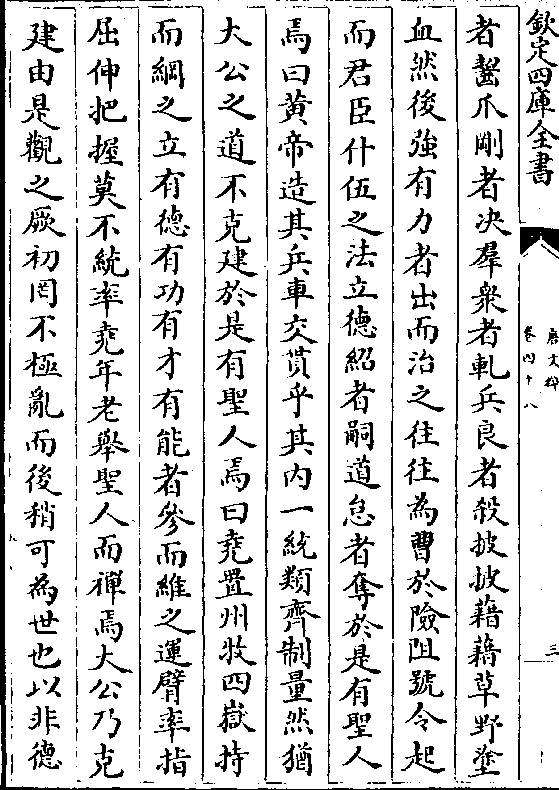 欽定四庫全書
唐文粹
卷四十八
三
者齧爪剛者决羣衆者軋兵良者殺披披藉藉草野塗
血然後強有力者出而治之往往為曹於險阻號令起
而君臣什伍之法立德紹者嗣道怠者奪於是有聖人
焉曰黄帝造其兵車交貫乎其内一統類齊制量然猶
大公之道不克建於是有聖人焉曰堯置州牧四嶽持
而綱之立有德有功有才有能者參而維之運臂率指
屈伸把握莫不統率堯年老舉聖人而禪焉大公乃克
建由是觀之厥初罔不極亂而後稍可為世也以非德